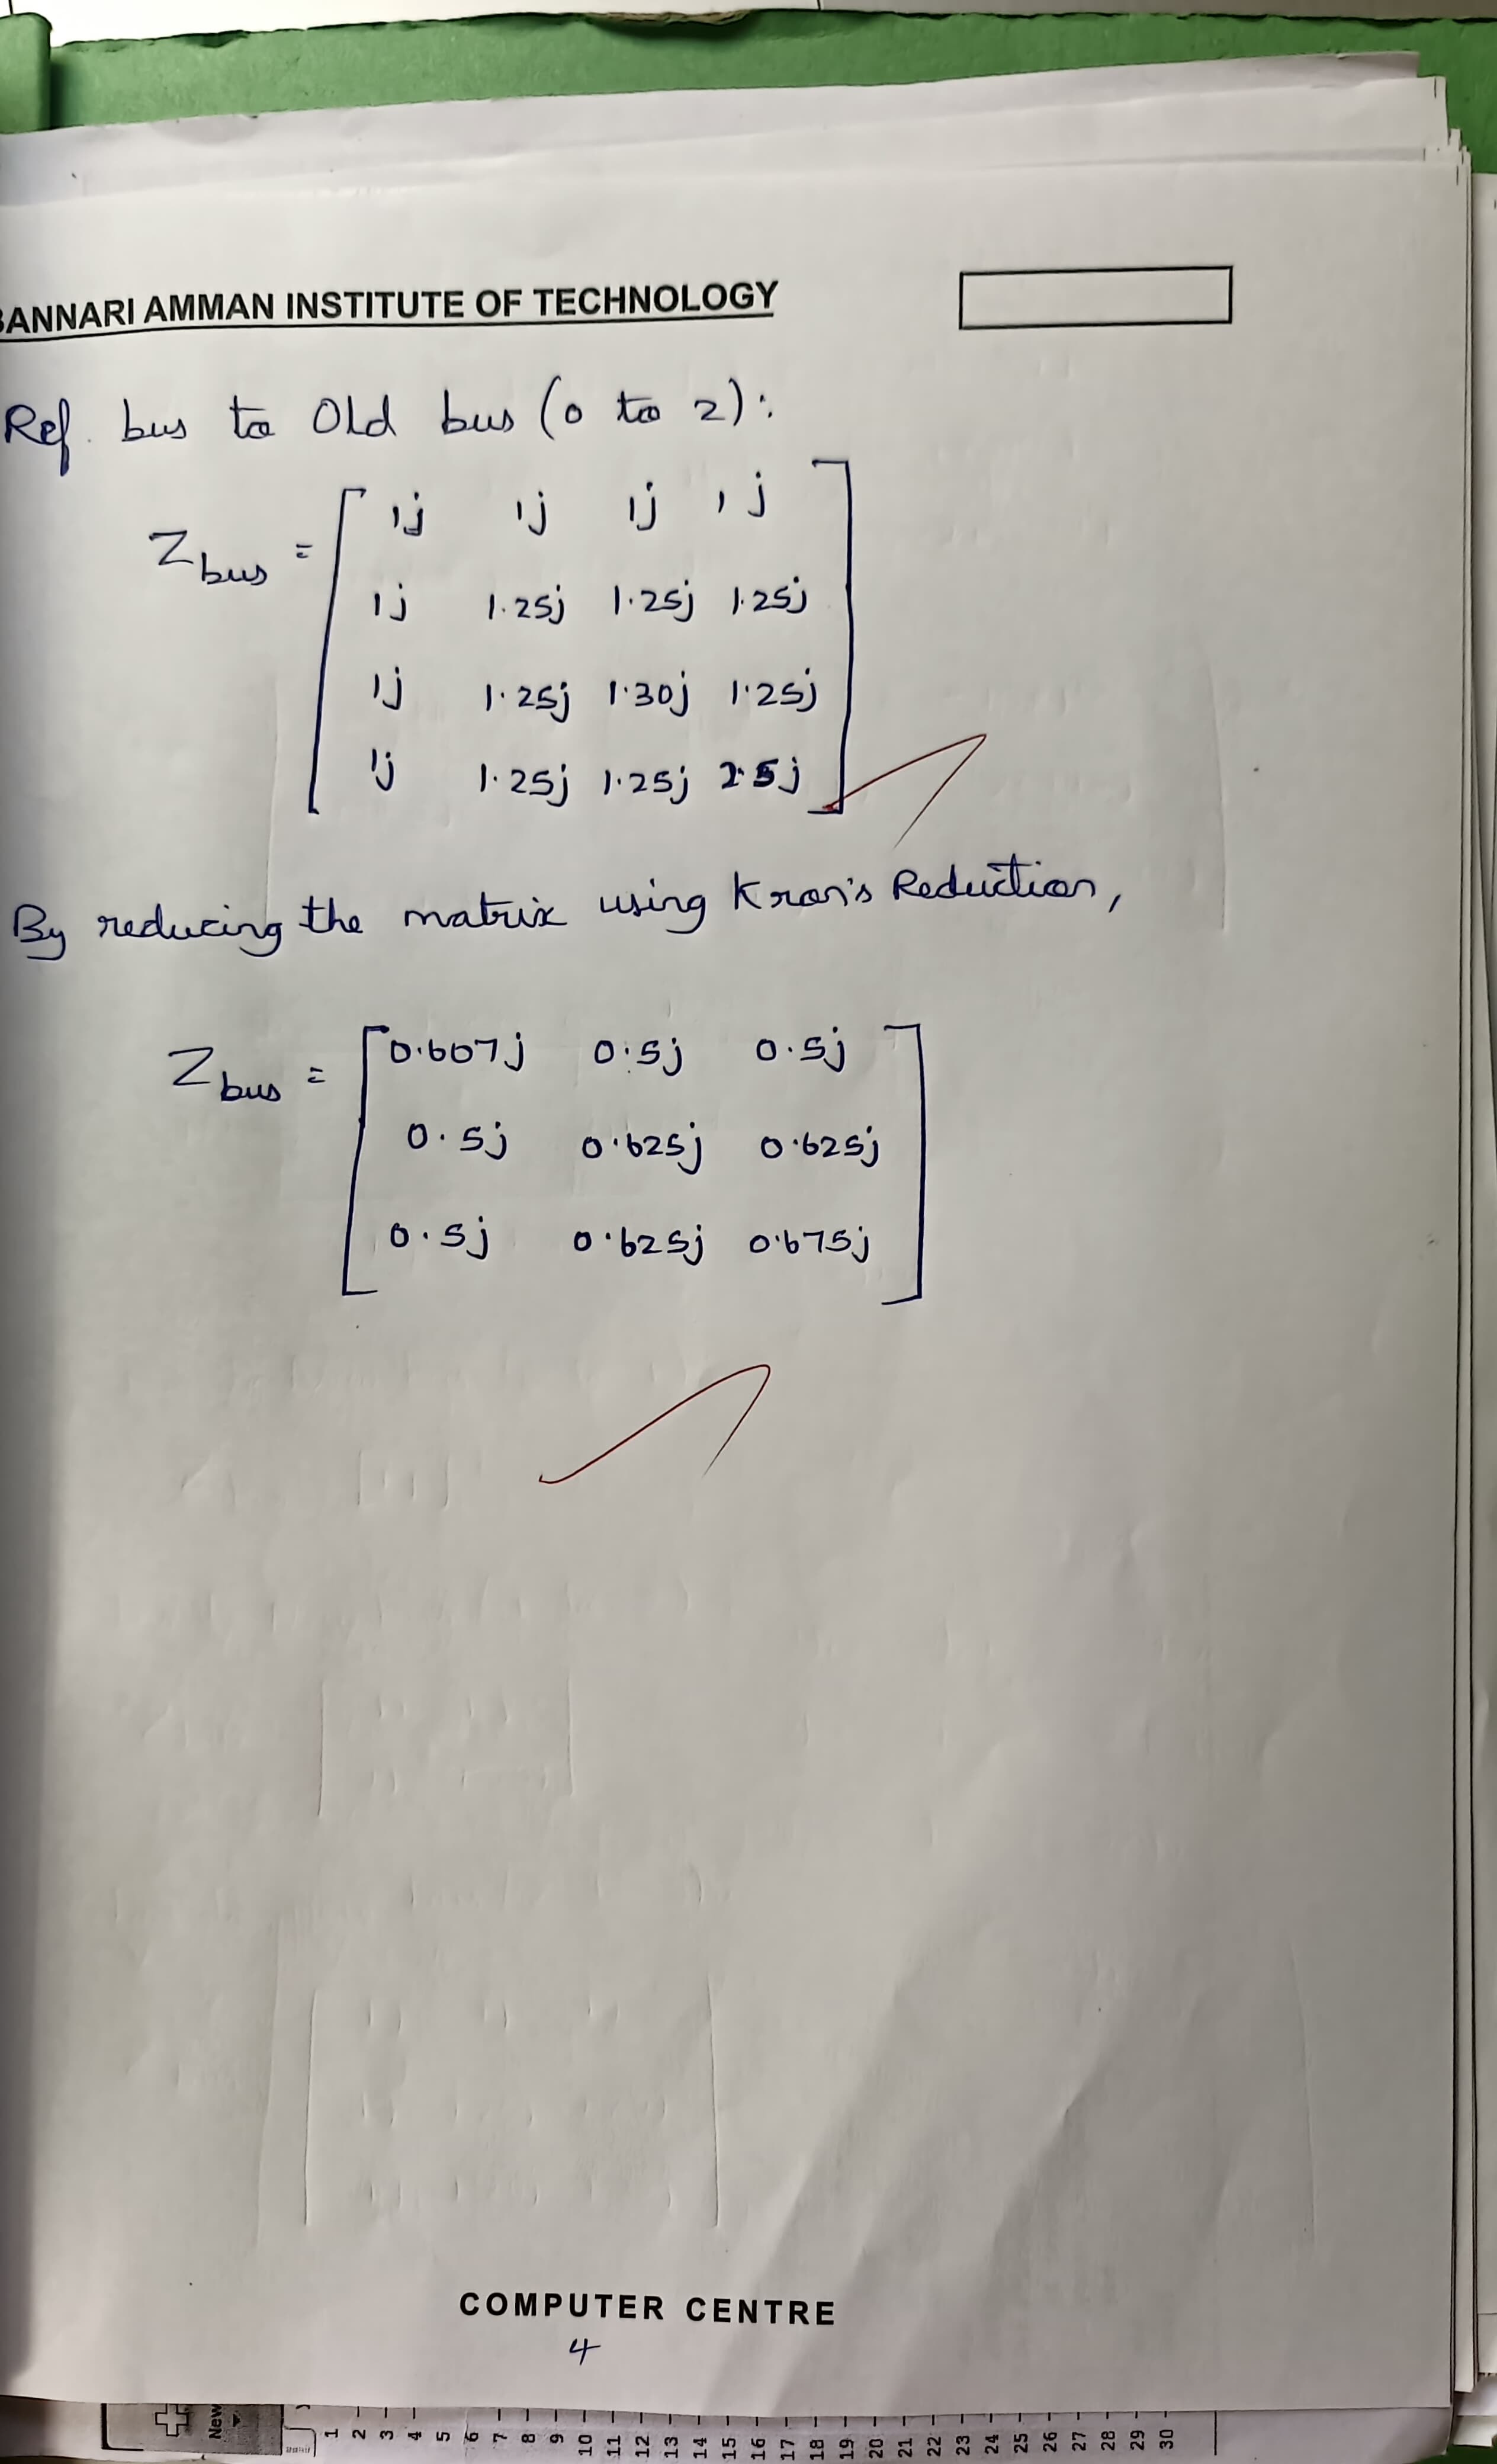 BANNARI AMMAN INSTITUTE OF TECHNOLOGY
Ref. bus to Old bus (0 to 2):
Zbus = [ 1j 1j 1j 1j
1j 1.25j 1.25j 1.25j
1j 1.25j 1.30j 1.25j
1j 1.25j 1.25j 2.5j ]
By reducing the matrix using Kron's Reduction,
Zbus = [ 0.607j 0.5j 0.5j
0.5j 0.625j 0.625j
0.5j 0.625j 0.675j ]
COMPUTER CENTRE
4
New
1 2 3 4 5 6 7 8 9 10 11 12 13 14 15 16 17 18 19 20 21 22 23 24 25 26 27 28 29 30